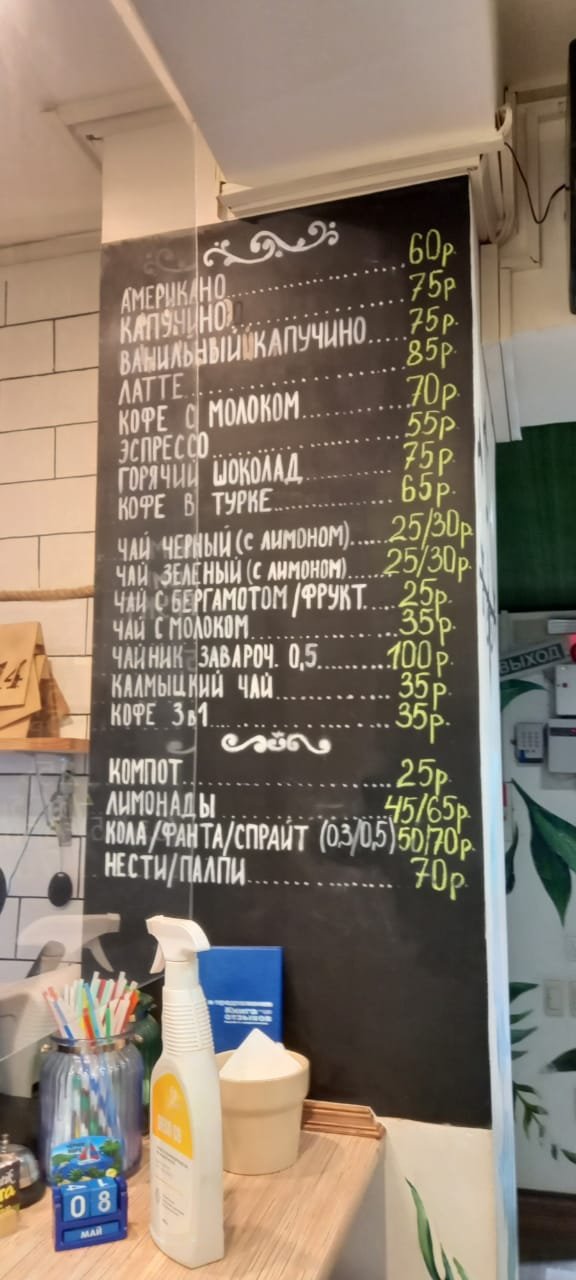 АМЕРИКАНО 60р.
КАПУЧИНО 75р.
ВАНИЛЬНЫЙ КАПУЧИНО 75р.
ЛАТТЕ 85р.
КОФЕ С МОЛОКОМ 70р.
ЭСПРЕССО 55р.
ГОРЯЧИЙ ШОКОЛАД 75р.
КОФЕ В ТУРКЕ 65р.
ЧАЙ ЧЕРНЫЙ (С ЛИМОНОМ) 25/30р.
ЧАЙ ЗЕЛЕНЫЙ (С ЛИМОНОМ) 25/30р.
ЧАЙ С БЕРГАМОТОМ/ФРУКТ. 25р.
ЧАЙ С МОЛОКОМ 35р.
ЧАЙНИК ЗАВАРОЧ. 0,5 100р.
КАЛМЫЦКИЙ ЧАЙ 35р.
КОФЕ 3в1 35р.
КОМПОТ 25р.
ЛИМОНАДЫ 45/65р.
КОЛА/ФАНТА/СПРАЙТ (0,3/0,5) 50/70р.
НЕСТИ/ПАЛПИ 70р.
ВЫХОД
14
Книга
отзывов
08
МАЙ